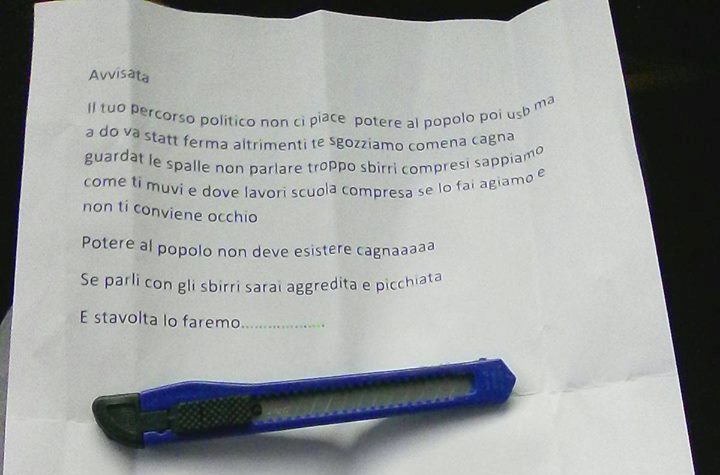 Avvisata
Il tuo percorso politico non ci piace potere al popolo poi usb ma
a do va statt ferma altrimenti te sgozziamo comena cagna
guardat le spalle non parlare troppo sbirri compresi sappiamo
come ti muvi e dove lavori scuola compresa se lo fai agiamo e
non ti conviene occhio
Potere al popolo non deve esistere cagnaaaaa
Se parli con gli sbirri sarai aggredita e picchiata
E stavolta lo faremo...................